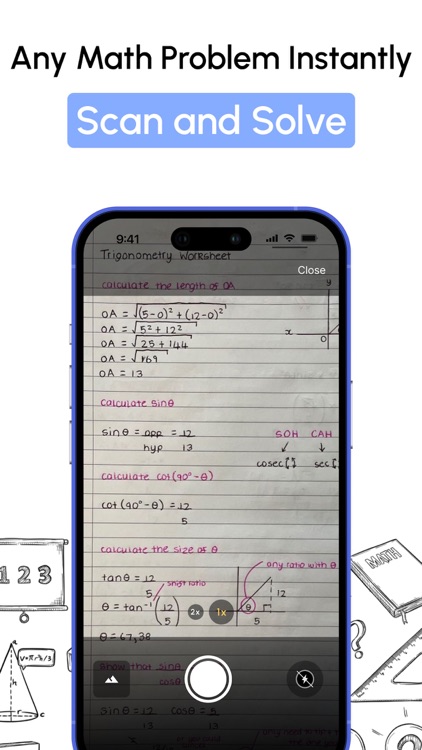 Any Math Problem Instantly
Scan and Solve
9:41
Trigonometry Worksheet
Close
calculate the length of OA
y
OA = √(5-0)² + (12-0)²
OA = √5² + 12²
x
OA = √25 + 144
0
OA = √169
OA = 13
calculate sinθ
sinθ = opp = 12
hyp 13
SOH CAH
cosec sec
calculate cot(90°-θ)
cot (90° - θ) = 12
5
calculate the size of θ
any ratio with θ
tanθ = 12
5
shift ratio
12
θ = tan⁻¹ (12
5)
2x
1x
θ
5
θ = 67,38
Show that sinθ
cosθ
sinθ = 12 cosθ = 5
13 13
1 2 3
MATH
h
r
c